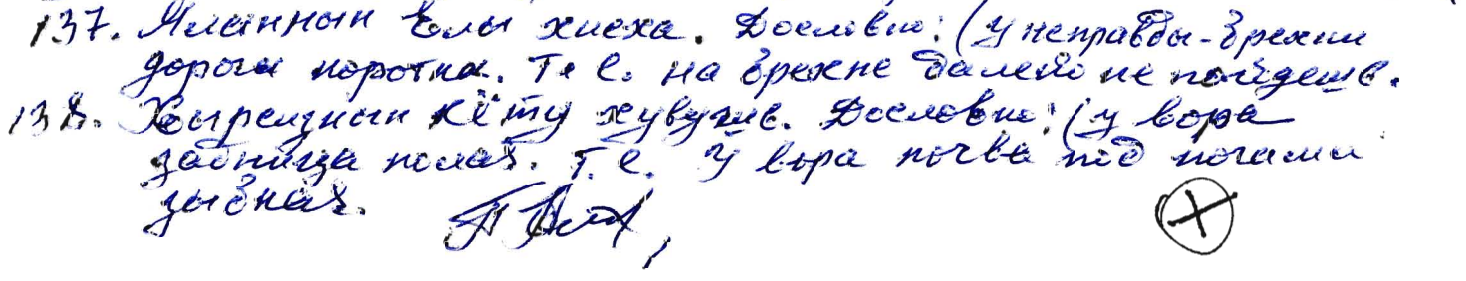 137. Яланнын ёлы хисха. Дословно: (у неправды-брехни
дорога коротка. Т.е. на брехне далеко не пойдешь.
138. Хырсызнын кёту хувушь. Дословно: (у вора
задница полая. Т.е. У вора почва под ногами
зыбкая.